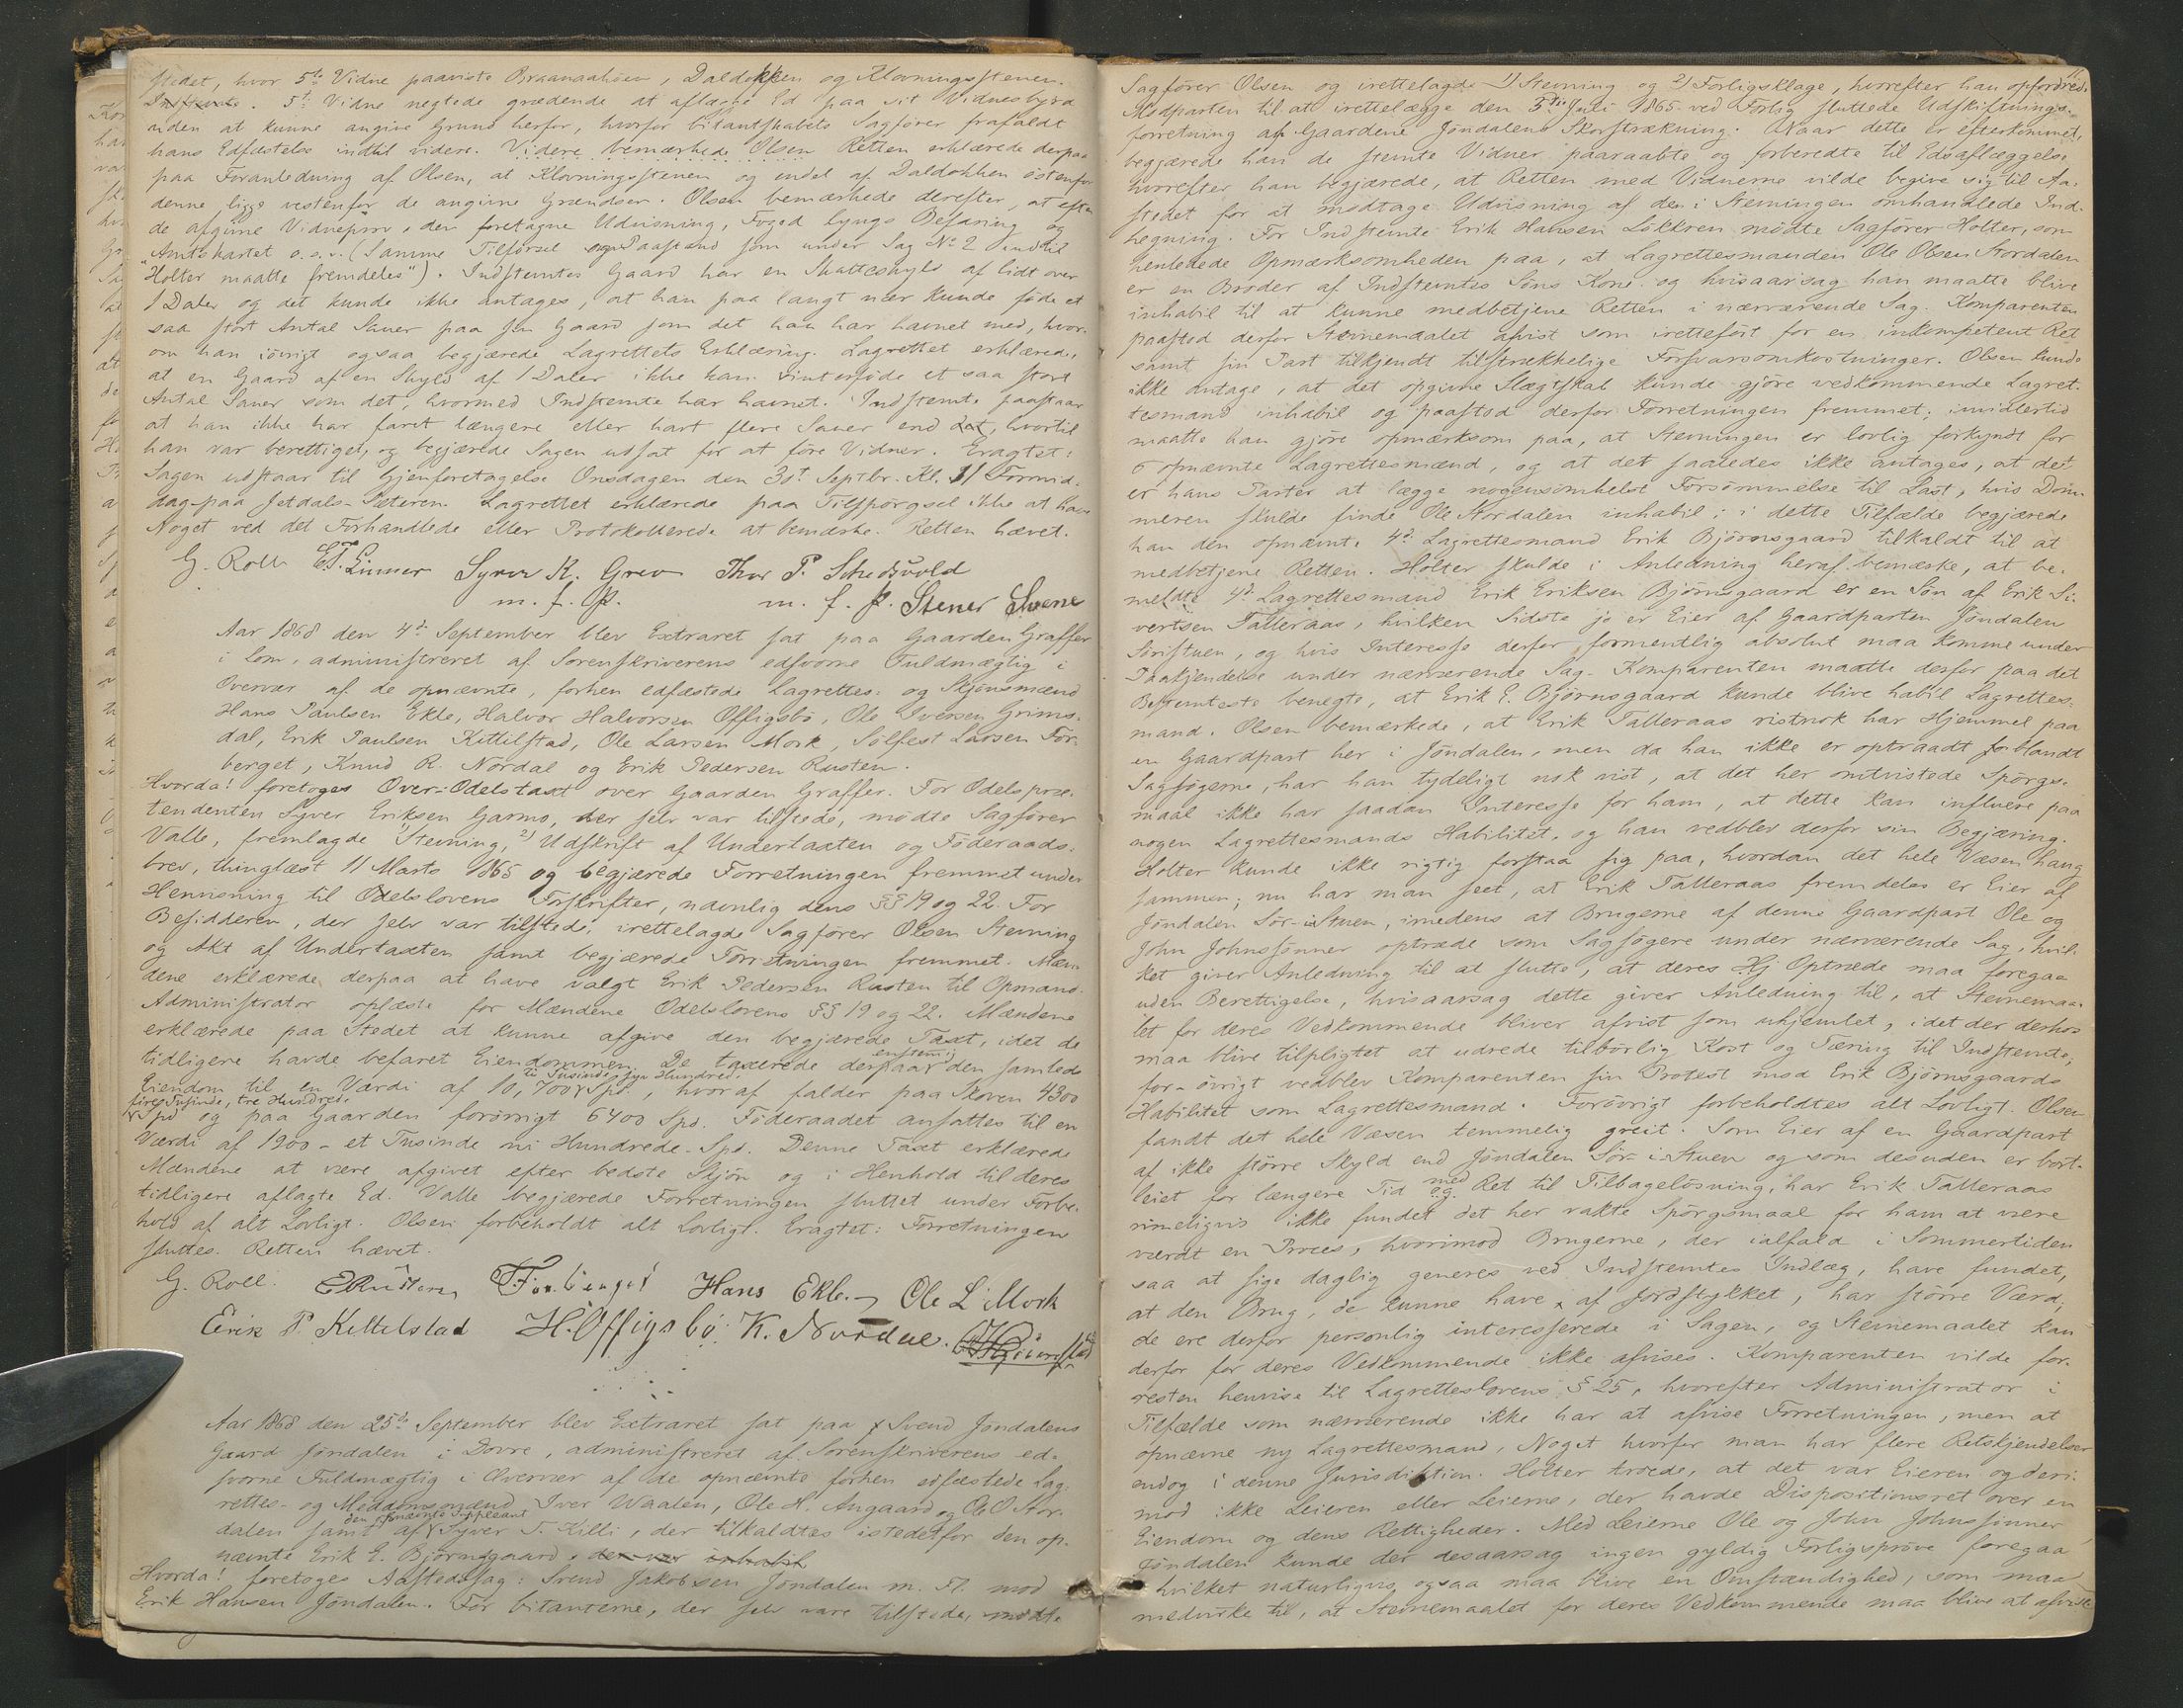 stedet, hvor 5te Vidne paaviste Braanaahöen, Daldokken og Klovningsstenen.
5te Vidne negtede grædende at aflægge Ed paa sit Vidnesbyrd
uden at kunne angive Grund herfor, hvorfor Citantskabets Sagfører frafaldt
hans Edfæstelse indtil videre. Videre bemærkede Olsen Retten erklærede derpaa
paa Foranledning af Olsen, at Klovningsstenen og endel af Daldokken östenfor
denne ligge vestenfor de angivne Grændser. Olsen bemærkede derefter, at efter
de afgivne Vidneprov, den foretagne Udvisning, Foged Lyngs Befaring og
Amtskartet o.s.v. (Samme Tilførsel og Paastand som under Sag No 2 indtil
"Holter maatte fremdeles"). Indstemtes Gaard har en Skatteskyld af lidt over
1 Daler og det kunde ikke antages, at han paa langt nær kunde føde et
saa stort Antal Sauer paa sin Gaard som det han har havnet med, hvor-
om han iövrigt ogsaa begjærede Lagrettets Erklæring. Lagrettet erklærede,
at en Gaard af en Skyld af 1 Daler ikke kan vinterføde et saa stort
Antal Sauer som det, hvormed Indstemte har havnet. Indstemte paastaar
at han ikke har faret længere eller havt flere Sauer end det, hvortil
han var berettiget, og begjærede Sagen udsat for at føre Vidner. Eragtet:
Sagen udstaar til Gjenforetagelse Onsdagen den 30te Septbr. Kl. 11 Formid-
dag paa Jetdals-Sæteren. Lagrettet erklærede paa Tilspørgsel ikke at have
Noget ved det Forhandlede eller Protokollerede at bemærke. Retten hævet.
G. Roll E.T. Linner Syver K. Grev Thor P. Schedsvold
m. f. P. m. f. P. Stener Svene
Aar 1868 den 4de September blev Extraret sat paa Gaarden Graffer
i Lom, administreret af Sorenskriverens edsvorne Fuldmægtig i
Overvær af de opnævnte, forhen edfæstede Lagrettes- og Skjönsmænd
Hans Paulsen Ekle, Halvor Halvorsen Offigsbö, Ole Iversen Grims-
dal, Erik Paulsen Kittilstad, Ole Larsen Mork, Sölfest Larsen For-
berget, Knud R. Nordal og Erik Pedersen Rusten.
Hvorda! foretoges Over-Odelstaxt over Gaarden Graffer. For Odelspræ-
tendenten Syver Eriksen Garmo, der selv var tilstede, mødte Sagfører
Valle, fremlagde 1) Stevning, 2) Udskrift af Undertaxten og Föderaads-
brev, thinglæst 11 Marts 1865 og begjærede Forretningen fremmet under
Henvisning til Odelslovens Forskrifter, navnlig dens §§ 19 og 22. For
Besidderen, der selv var tilstede, irettelagde Sagfører Olsen Stevning
og Akt af Undertaxten samt begjærede Forretningen fremmet. Mæn-
dene erklærede derpaa at have valgt Erik Pedersen Rusten til Opmand.
Administrator oplæste for Mændene Odelslovens §§ 19 og 22. Mændene
erklærede paa Stedet at kunne afgive den begjærede Taxt, idet de
tidligere havde befaret Eiendommen. De taxerede derpaa enstemmig den samlede
Eiendom til en Værdi af 10,700 ti Tusinde, syv Hundrede Spd., hvoraf falder paa Skoven 4300
fire Tusinde, tre Hundrede Spd og paa Gaarden forövrigt 6400 Spd. Föderaadet ansattes til en
Værdi af 1900 - et Tusinde ni Hundrede - Spd. Denne Taxt erklærede
Mændene at være afgivet efter bedste Skjön og i Henhold til deres
tidligere aflagte Ed. Valle begjærede Forretningen sluttet under Forbe-
hold af alt Lovligt. Olsen forbeholdt alt Lovligt. Eragtet: Forretningen
sluttes. Retten hævet.
G. Roll. E Rusten S. Forberget Hans Ekle. Ole L Mork
Erik P Kettelstad H. Offigsbö K. Nordal.
Aar 1868 den 25de September blev Extraret sat paa Svend Jöndalens
Gaard Jöndalen i Dovre, administreret af Sorenskriverens ed-
svorne Fuldmægtig i Overvær af de opnævnte forhen edfæstede Lag-
rettes- og Meddomsmænd Iver Waalen, Ole H. Angaard og Ole O Stor-
dalen samt af den opnævnte Suppleant Syver T. Killi, der tilkaldtes istedetfor den op-
nævnte Erik E. Björnsgaard, der var inhabil
Hvorda! foretoges Aastedssag: Svend Jakobsen Jöndalen m. Fl. mod
Erik Hansen Jöndalen. For Citanterne, der selv vare tilstede, mødte
Sagfører Olsen og irettelagde 1) Stevning og 2) Forligsklage, hvorefter han opfordrede
Modparten til at irettelægge den 5te Juli 1865 ved Forlig sluttede Udskiftnings-
forretning af Gaardene Jöndalens Skovstrækning. Naar dette er efterkommet,
begjærede han de stevnte Vidner paaraabte og forberedte til Edsaflæggelse
hvorefter han begjærede, at Retten med Vidnerne vilde begive sig til Aa-
stedet for at modtage Udvisning af den i Stevningen omhandlede Ind-
hegning. For Indstemte Erik Hansen Løkkren mødte Sagfører Holter, som
henledede Opmærksomheden paa, at Lagrettesmanden Ole Olsen Stordalen
er en Broder af Indstemtes Söns Kone og hvisaarsag han maatte blive
inhabil til at kunne medbetjene Retten i nærværende Sag. Komparenten
paastod derfor Stevnemaalet afvist som irettefört for en inkompetent Ret
samt sin Part tilkjendt tilstrækkelige Forsvarsomkostninger. Olsen kunde
ikke antage, at det opgivne Slægtskab kunde gjøre vedkommende Lagret-
tesmand inhabil og paastod derfor Forretningen fremmet; imidlertid
maatte han gjøre opmærksom paa, at Stevningen er lovlig forkyndt for
6 opnævnte Lagrettesmænd, og at det saaledes ikke antages, at det
er hans Parter at lægge nogensomhelst Forsømmelse til Last, hvis Dom-
meren skulde finde Ole Stordalen inhabil; i dette Tilfælde begjærede
han den opnævnte 4de Lagrettesmand Erik Björnsgaard tilkaldt til at
medbetjene Retten. Holter skulde i Anledning heraf bemærke, at be-
meldte 4de Lagrettesmand Erik Eriksen Björnsgaard er en Sön af Erik Si-
vertsen Talleraas, hvilken Sidste jo er Eier af Gaardparten Jöndalen
Söristuen, og hvis Interesse derfor formentlig absolut maa komme under
Paakjendelse under nærværende Sag. Komparenten maatte derfor paa det
Bestemteste benegte, at Erik E. Björnsgaard kunde blive habil Lagrettes-
mand. Olsen bemærkede, at Erik Talleraas vistnok har Hjemmel paa
en Gaardpart her i Jöndalen, men da han ikke er optraadt forblandt
Sagsögerne, har han tydeligt nok vist, at det her omtvistede Spörgs-
maal ikke har saadan Interesse for ham, at dette kan influere paa
nogen Lagrettesmands Habilitet, og han vedblev derfor sin Begjæring.
Holter kunde ikke rigtig forstaa sig paa, hvordan det hele Væsen hang
sammen; nu har man seet, at Erik Talleraas fremdeles er Eier af
Jöndalen Sör-i-Stuen, imedens at Brugerne af denne Gaardpart Ole og
John Johnssönner optræde som Sagsögere under nærværende Sag, hvil-
ket giver Anledning til at slutte, at deres Optræde maa foregaa
uden Berettigelse, hvisaarsag dette giver Anledning til, at Stevnemaa-
let for deres Vedkommende bliver afvist som uhjemlet, idet der derhos
maa blive tilpligtet at udrede tilbørlig Kost og Tæring til Indstemte;
for-övrigt vedblev Komparenten sin Protest mod Erik Björnsgaards
Habilitet som Lagrettesmand. Forövrigt forbeholdtes alt Lovligt. Olsen
fandt det hele Væsen temmelig greit. Som Eier af en Gaardpart
af ikke större Skyld end Jöndalen Sör-i-Stuen og som desuden er bort-
leiet for længere Tid med Ret til Tilbagelösning, har Erik Talleraas
rimeligvis ikke fundet det her vakte Spörgsmaal for ham at være
værdt en Proces, hvorimod Brugerne, der ialfald i Sommertiden
saa at sige daglig generes ved Indstemtes Indlæg, have fundet,
at den Brug, de kunne have af Jordstykket, har större Værd;
de ere derfor personlig interesserede i Sagen, og Stevnemaalet kan
derfor for deres Vedkommende ikke afvises. Komparenten vilde for-
resten henvise til Lagretteslovens § 25, hvorefter Administrator i
Tilfælde som nærværende ikke har at afvise Forretningen, men at
opnævne ny Lagrettesmand, Noget hvorfor man har flere Retskjendelser
endog i denne Jurisdiktion. Holter troede, at det var Eieren og deri-
mod ikke Leieren eller Leierne, der havde Dispositionsret over en
Eiendom og dens Rettigheder. Med Leierne Ole og John Johnssönner
Jöndalen kunde der desaarsag ingen gyldig Forligspröve foregaa,
hvilket naturligvis ogsaa maa blive en Omstændighed, som maa
medvirke til, at Stevnemaalet for deres Vedkommende maa blive at afvise.